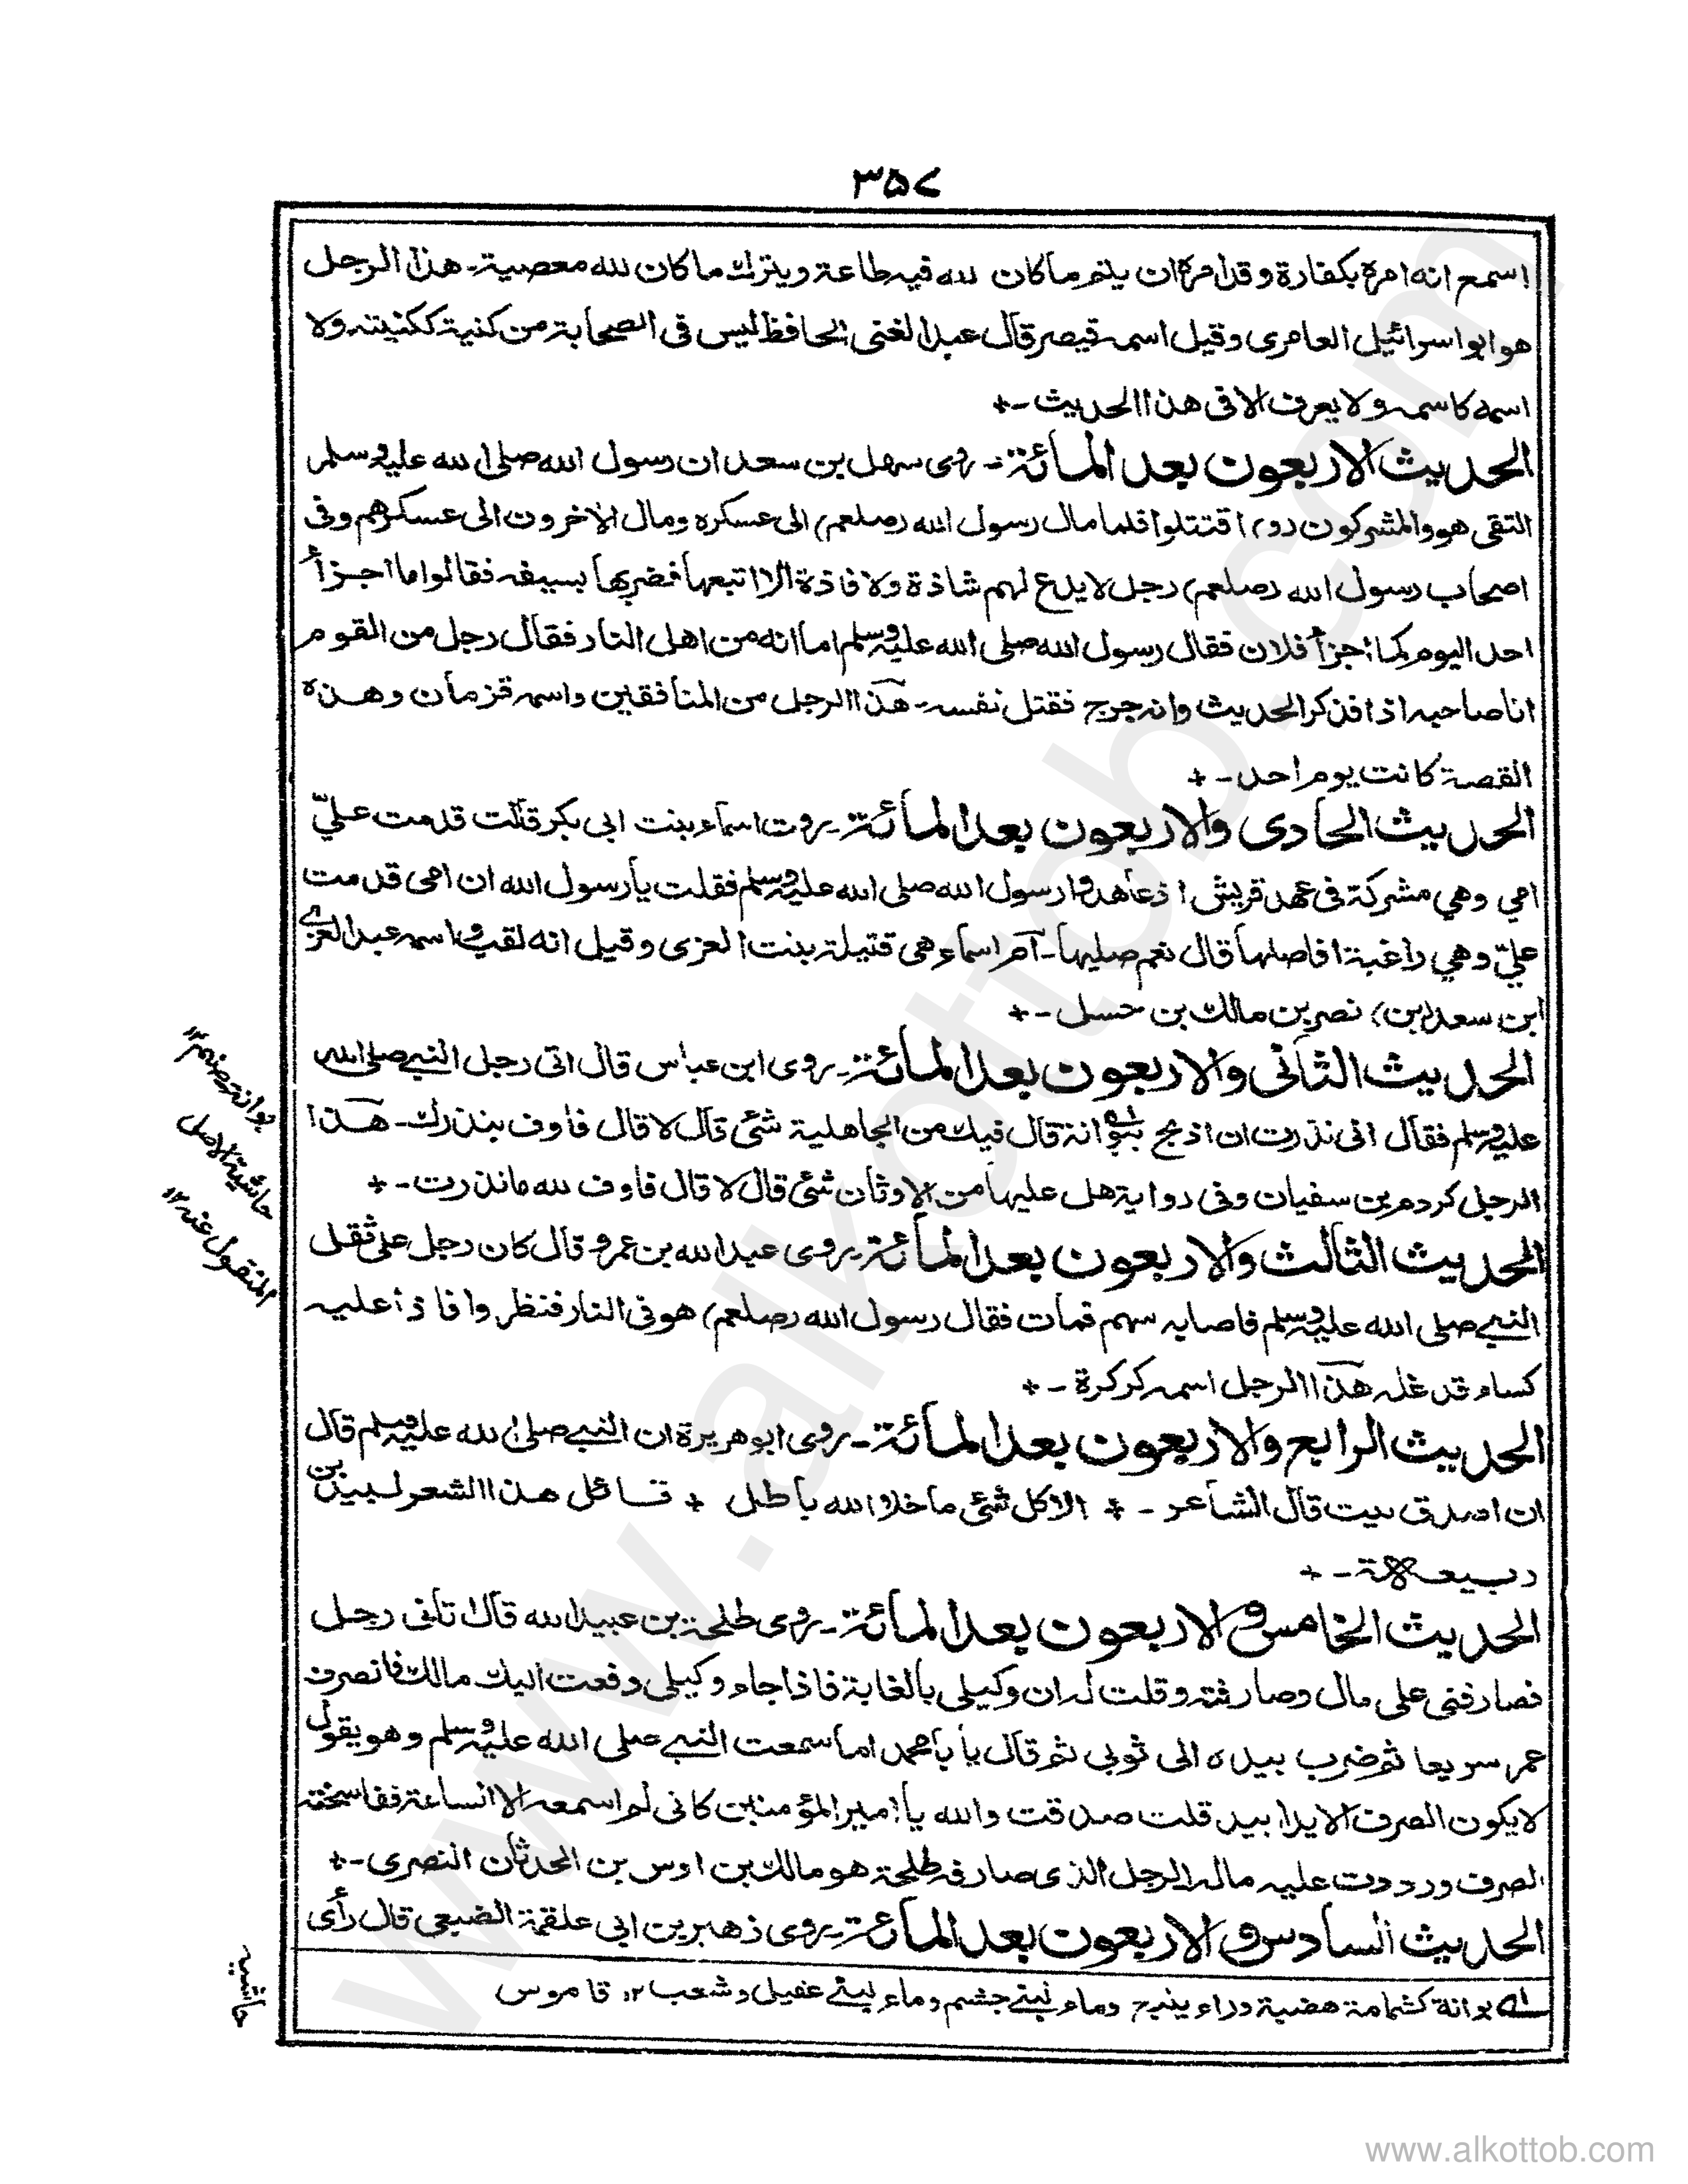 ٣٥٧
اسمع انه امره بكفارة وقد امره ان يتم ما كان لله فيه طاعة ويترك ما كان لله معصية۔ هذا الرجل
هو ابو اسرائيل العامرى وقيل اسمه قيصر قال عبد الغنى الحافظ ليس فى الصحابة من كنية ككنيته ولا
اسمه كاسمه ولا يعرف الا فى هذا الحديث ۔+
الحديث الاربعون بعد المائة۔ روى سهل بن سعد ان رسول الله صلى الله عليه وسلم
التقى هو والمشركون (و) اقتتلوا فلما مال رسول الله (صلعم) الى عسكره ومال الاخرون الى عسكرهم وفى
اصحاب رسول الله (صلعم) رجل لا يدع لهم شاذة ولا فاذة الا اتبعها فضربها بسيفه فقالوا ما اجزأ
احد اليوم كما اجزأ فلان فقال رسول الله صلى الله عليه وسلم اما انه من اهل النار فقال رجل من القوم
انا صاحبه اذا فذكر الحديث وانه جرح فقتل نفسه۔ هذا الرجل من المنافقين واسمه قزمان وهذه
القصة كانت يوم احد ۔+
الحديث الحادى والاربعون بعد المائة۔ روت اسماء بنت ابى بكر قالت قدمت علىّ
امي وهي مشركة فى عهد قريش اذ عاهدوا رسول الله صلى الله عليه وسلم فقلت يا رسول الله ان امى قدمت
علىّ وهي راغبة افاصلها قال نعم صليها۔ ام اسماء هى قتيلة بنت العزى وقيل انه لقب واسمه عبد العزے
ابن سعد (بن) نصر بن مالك بن حسل ۔+
الحديث الثانى والاربعون بعد المائة۔ روى ابن عباس قال اتى رجل النبي صلى الله
عليه وسلم فقال انى نذرت ان اذبح ببوانة قال فيك من الجاهلية شئ قال لا قال فاوف بنذرك۔ هذا
الرجل كردم بن سفيان وفى رواية هل عليها من الاوثان شئ قال لا قال فاوف لله ما نذرت ۔+
الحديث الثالث والاربعون بعد المائة۔ روى عبد الله بن عمرو قال كان رجل على ثقل
النبي صلى الله عليه وسلم فاصابه سهم فمات فقال رسول الله (صلعم) هو فى النار فنظروا فاذا عليه
كساء قد غله هذا الرجل اسمه كركرة ۔+
الحديث الرابع والاربعون بعد المائة۔ روى ابو هريرة ان النبي صلى الله عليه وسلم قال
ان اصدق بيت قال الشاعر ۔ + الا كل شئ ما خلا الله باطل + قائل هذا الشعر لبيد بن
ربيعة ۔+
الحديث الخامس والاربعون بعد المائة۔ روى طلحة بن عبيد الله قال تانى رجل
فصارفنى على مال وصارفته وقلت له ان وكيلى بالغابة فاذا جاء وكيلى دفعت اليك مالك فانصرف
عمر سريعا ثم ضرب بيده الى ثوبى ثم قال يا با محمد اما سمعت النبي صلى الله عليه وسلم وهو يقول
لا يكون الصرف الا يدا بيد قلت صدقت والله يا امير المؤمنين كانى لم اسمعه الا الساعة ففاسخته
الصرف ورددت عليه ماله الرجل الذى صارفه طلحة هو مالك بن اوس بن الحدثان النصرى ۔+
الحديث السادس والاربعون بعد المائة۔ روى زهير بن ابى علقمة الضبعى قال رأى
له بوانة كثمامة هضبة وراء ينبع وماء لبنے جشم وماء لبنے عقيل وشعب ١٢ قاموس
بوانة بضم ١٢
حاشية الاصل
المنقول عنه ١٢
حاشيه
www.alkottob.com
www.alkottob.com